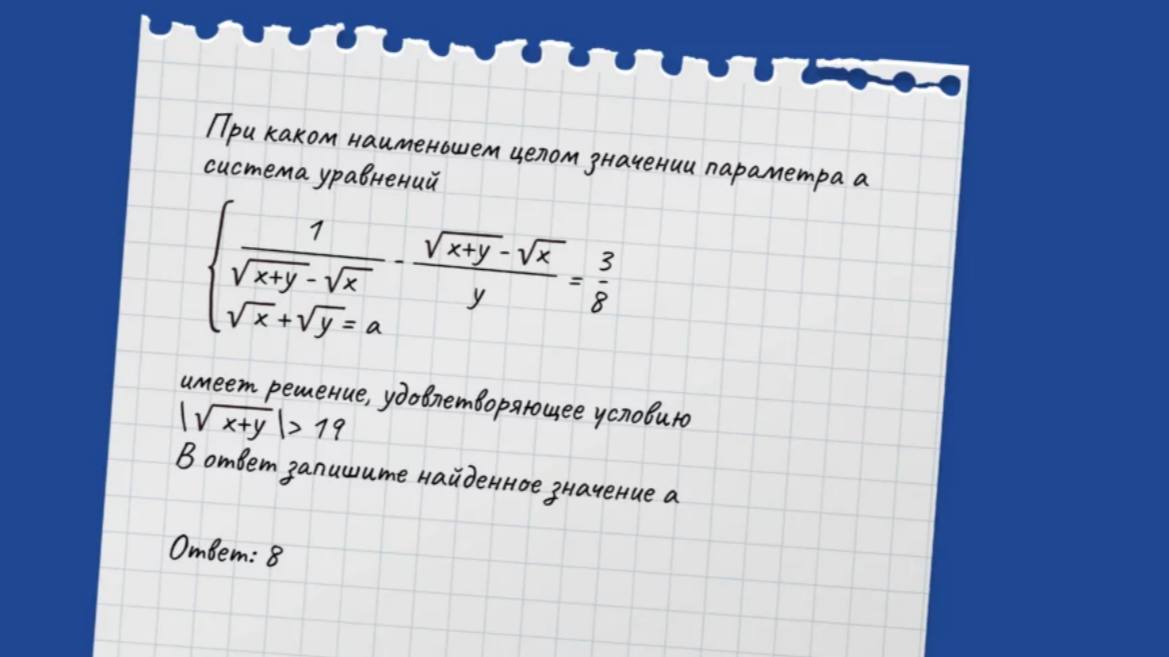 При каком наименьшем целом значении параметра а
система уравнений
{ 1/(√(x+y) - √x) - (√(x+y) - √x)/y = 3/8
√x + √y = a
имеет решение, удовлетворяющее условию
|√(x+y)| > 19
В ответ запишите найденное значение а
Ответ: 8